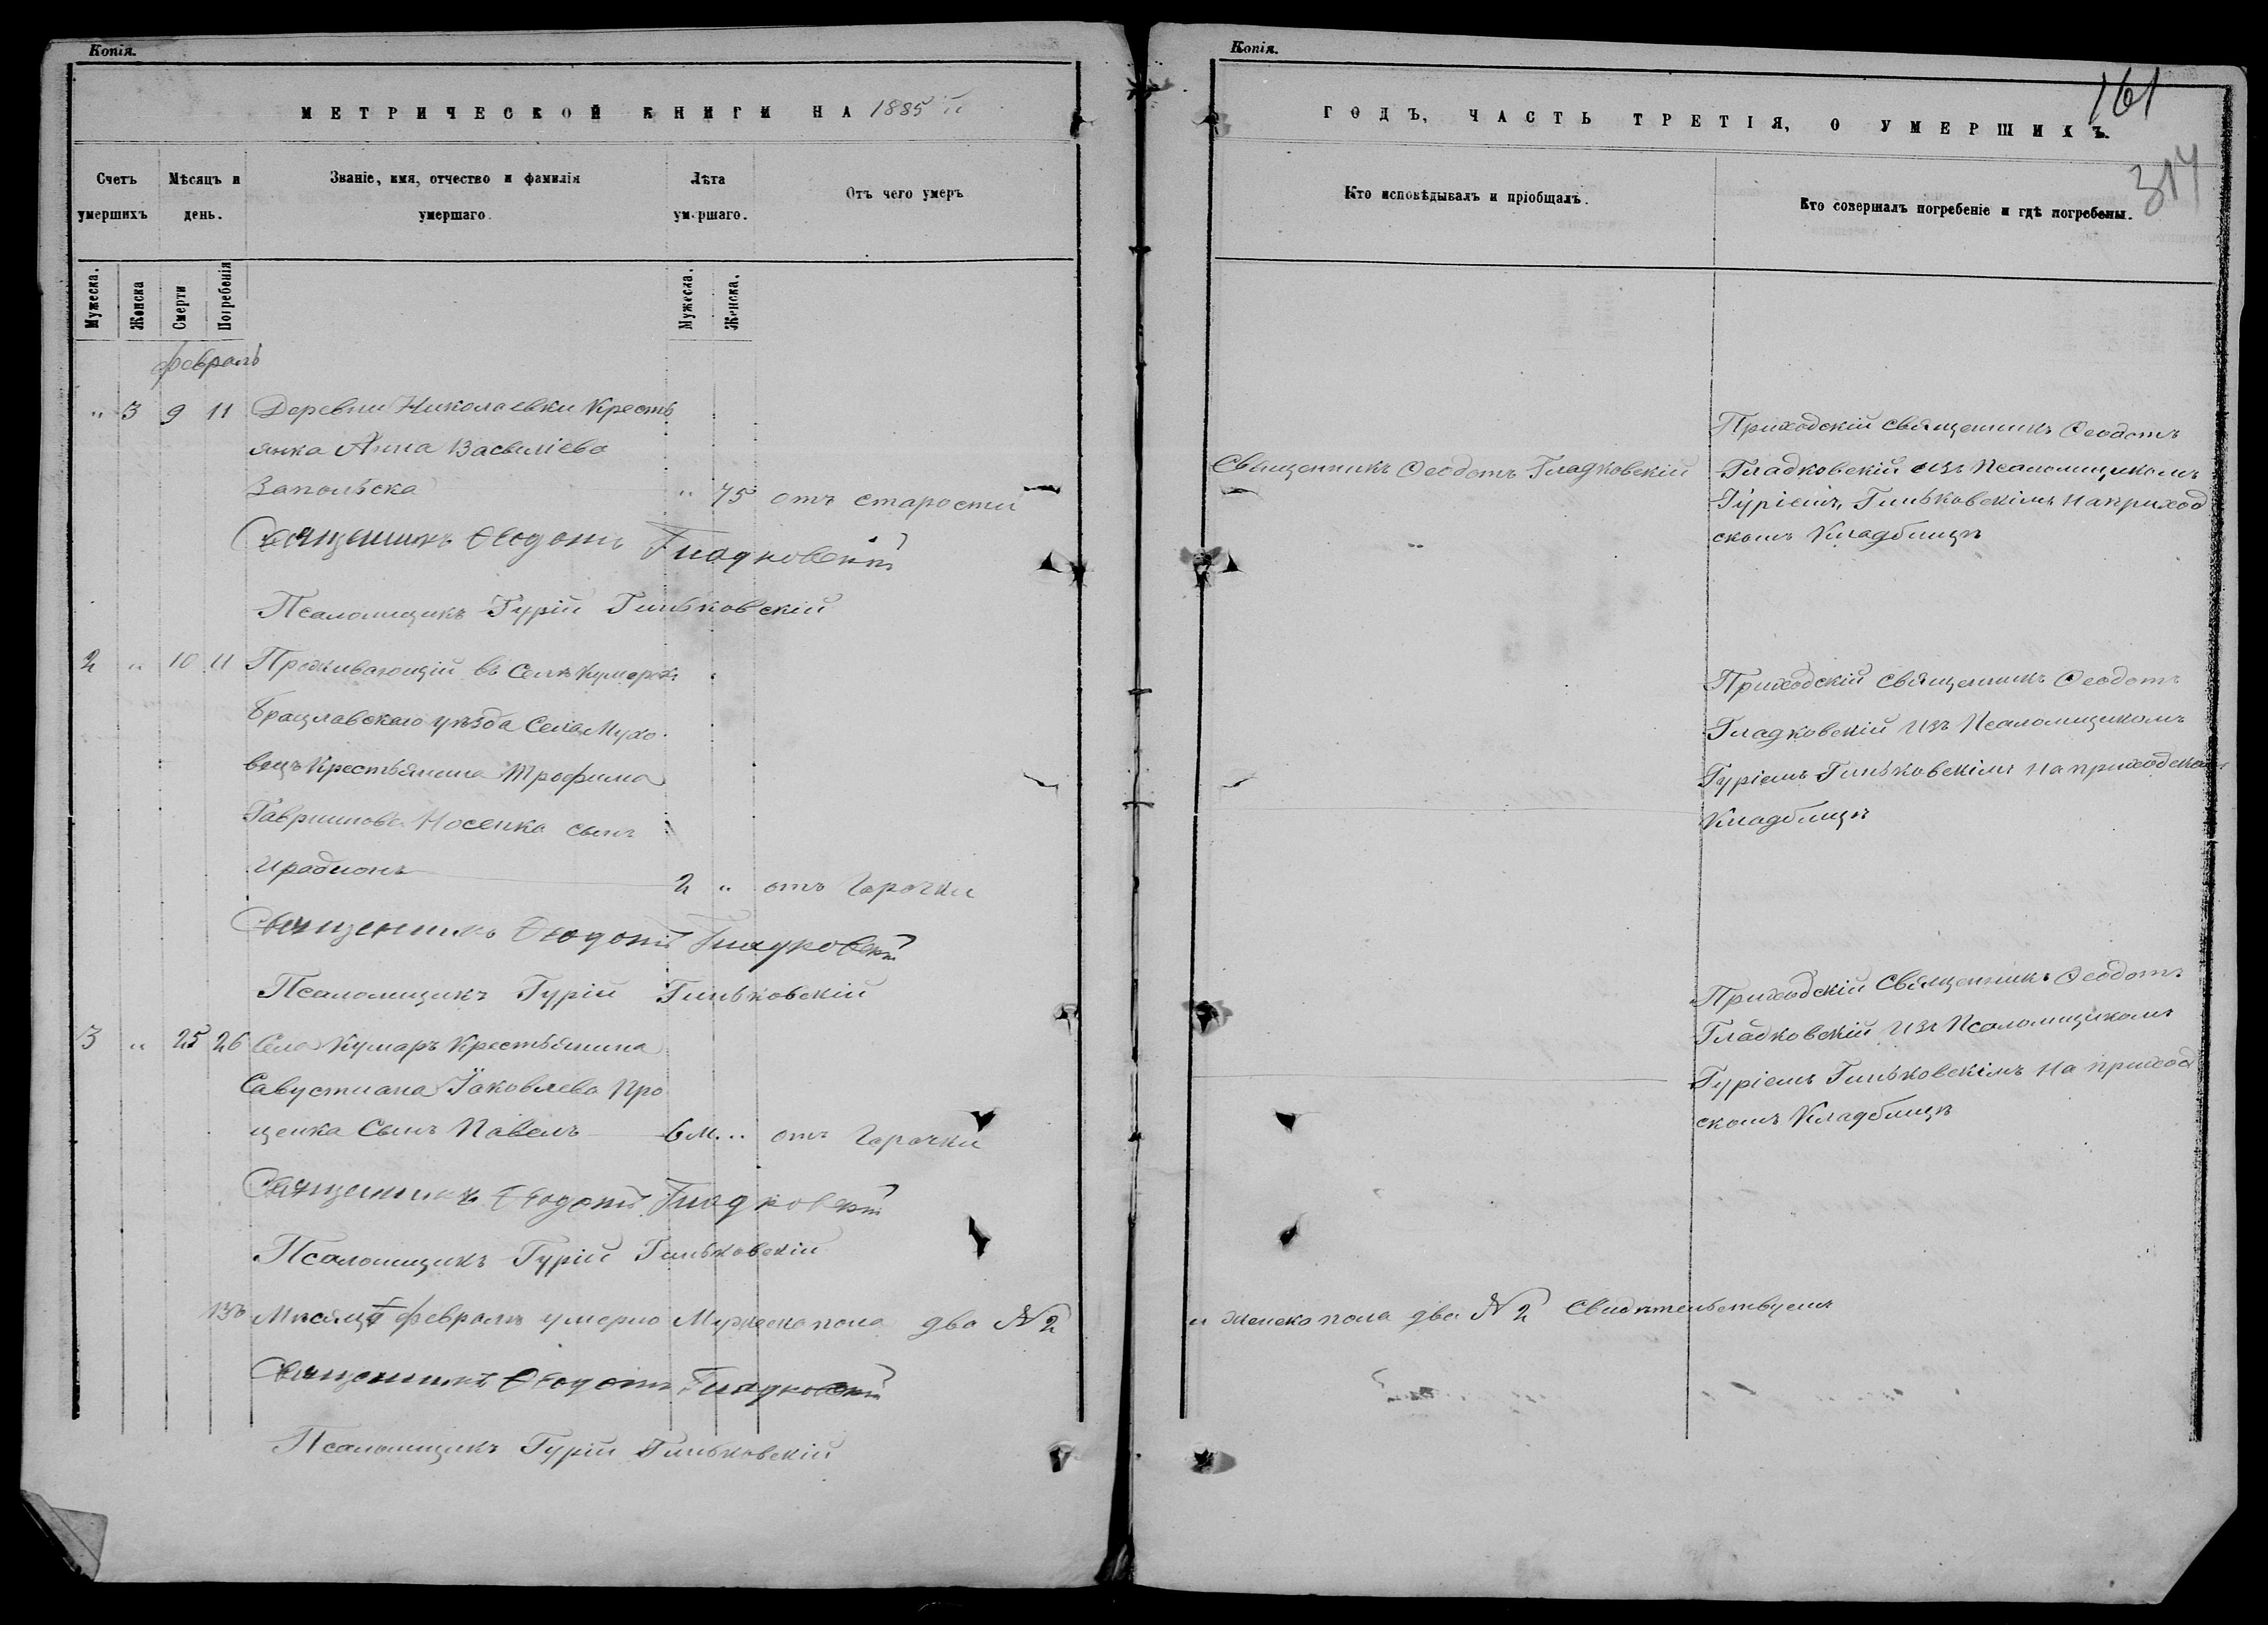 Копія.
МЕТРИЧЕСКОЙ КНИГИ НА 1885 й
Счетъ умершихъ
Мѣсяцъ и день.
Званіе, имя, отчество и фамилія умершаго.
Лѣта умершаго.
Отъ чего умеръ
Мужеска.
Женска
Смерти
Погребенія
Мужеска.
Женска.
февраль
" 3 9 11 Деревни Николаевки Кресть
янка Анна Василіева
" 75 отъ старости
Священникъ Ѳеодотъ Гладковскій
Псаломщикъ Гурій Гиньковскій
2 " 10 11 Проживающій въ Селѣ Кумарѣ
Брацлавскаго уѣзда Села Мухо
вецъ Крестьянина Трофима
Гавриилова Носенка сынъ
Иродионъ 2 " отъ Горячки
Священникъ Ѳеодотъ Гладковскій
Псаломщикъ Гурій Гиньковскій
3 " 25 26 Села Кумаръ Крестьянина
Савустиана Іаковлева Про
ценка Сынъ Павелъ 6 м. " отъ Горячки
Священникъ Ѳеодотъ Гладковскій
Псаломщикъ Гурій Гиньковскій
Мѣсяцѣ февралѣ умерло Мужеска пола два № 2
Священникъ Ѳеодотъ Гладковскій
Псаломщикъ Гурій Гиньковскій
Копія.
161
ГОДЪ, ЧАСТЬ ТРЕТІЯ, О УМЕРШИХЪ.
314
Кто исповѣдывалъ и пріобщалъ.
Кто совершалъ погребеніе и гдѣ погребены.
Священникъ Ѳеодотъ Гладковскій
Приходскій священникъ Ѳеодотъ
Гладковскій изъ Псаломщикомъ
Гуріемъ Гиньковскімъ на приход
скомъ Кладбищѣ
Приходскій священникъ Ѳеодотъ
Гладковскій изъ Псаломщикомъ
Гуріемъ Гиньковскімъ на приходском
Кладбищѣ
Приходскій Священникъ Ѳеодотъ
Гладковскій изъ Псаломщикомъ
Гуріемъ Гиньковскімъ на приход
скомъ Кладбищѣ
и женска пола два № 2 Свидѣтельствуемъ